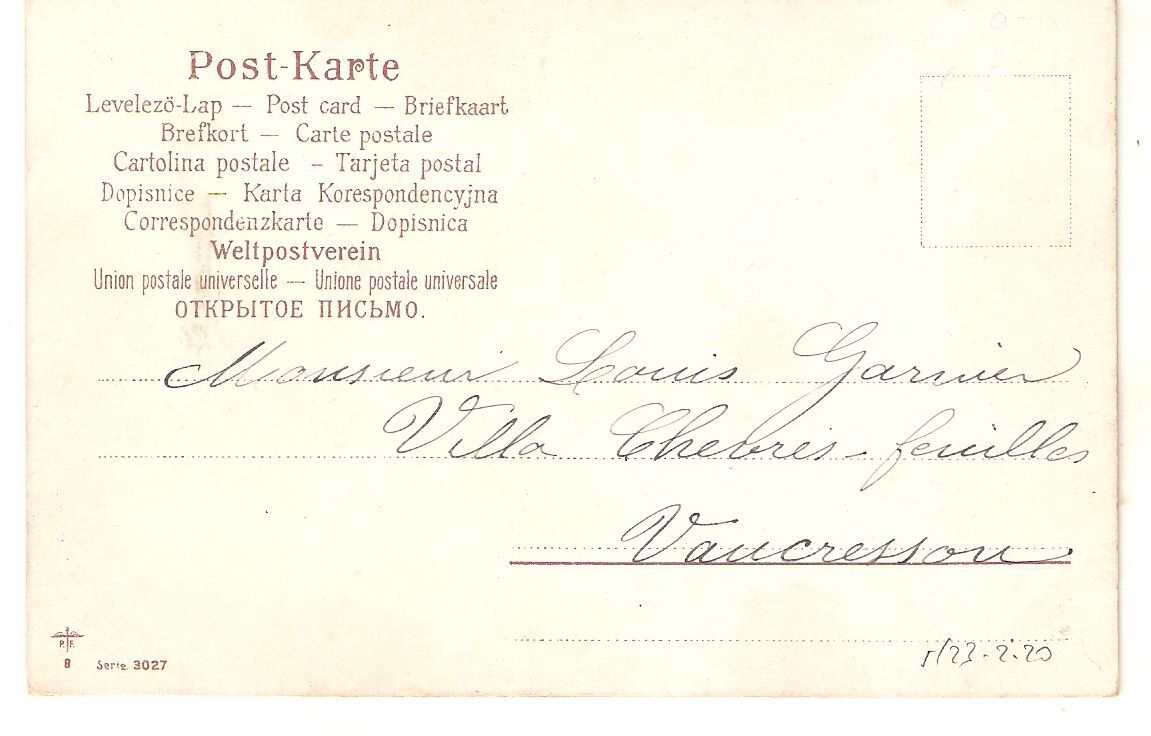 Post-Karte
Levelezö-Lap — Post card — Briefkaart
Brefkort — Carte postale
Cartolina postale - Tarjeta postal
Dopisnice — Karta Korespondencyjna
Correspondenzkarte — Dopisnica
Weltpostverein
Union postale universelle — Unione postale universale
ОТКРЫТОЕ ПИСЬМО.
Monsieur Louis Garnier
Villa Chevres-feuilles
Vaucresson
23-2-20
P.F.
8 Serie 3027